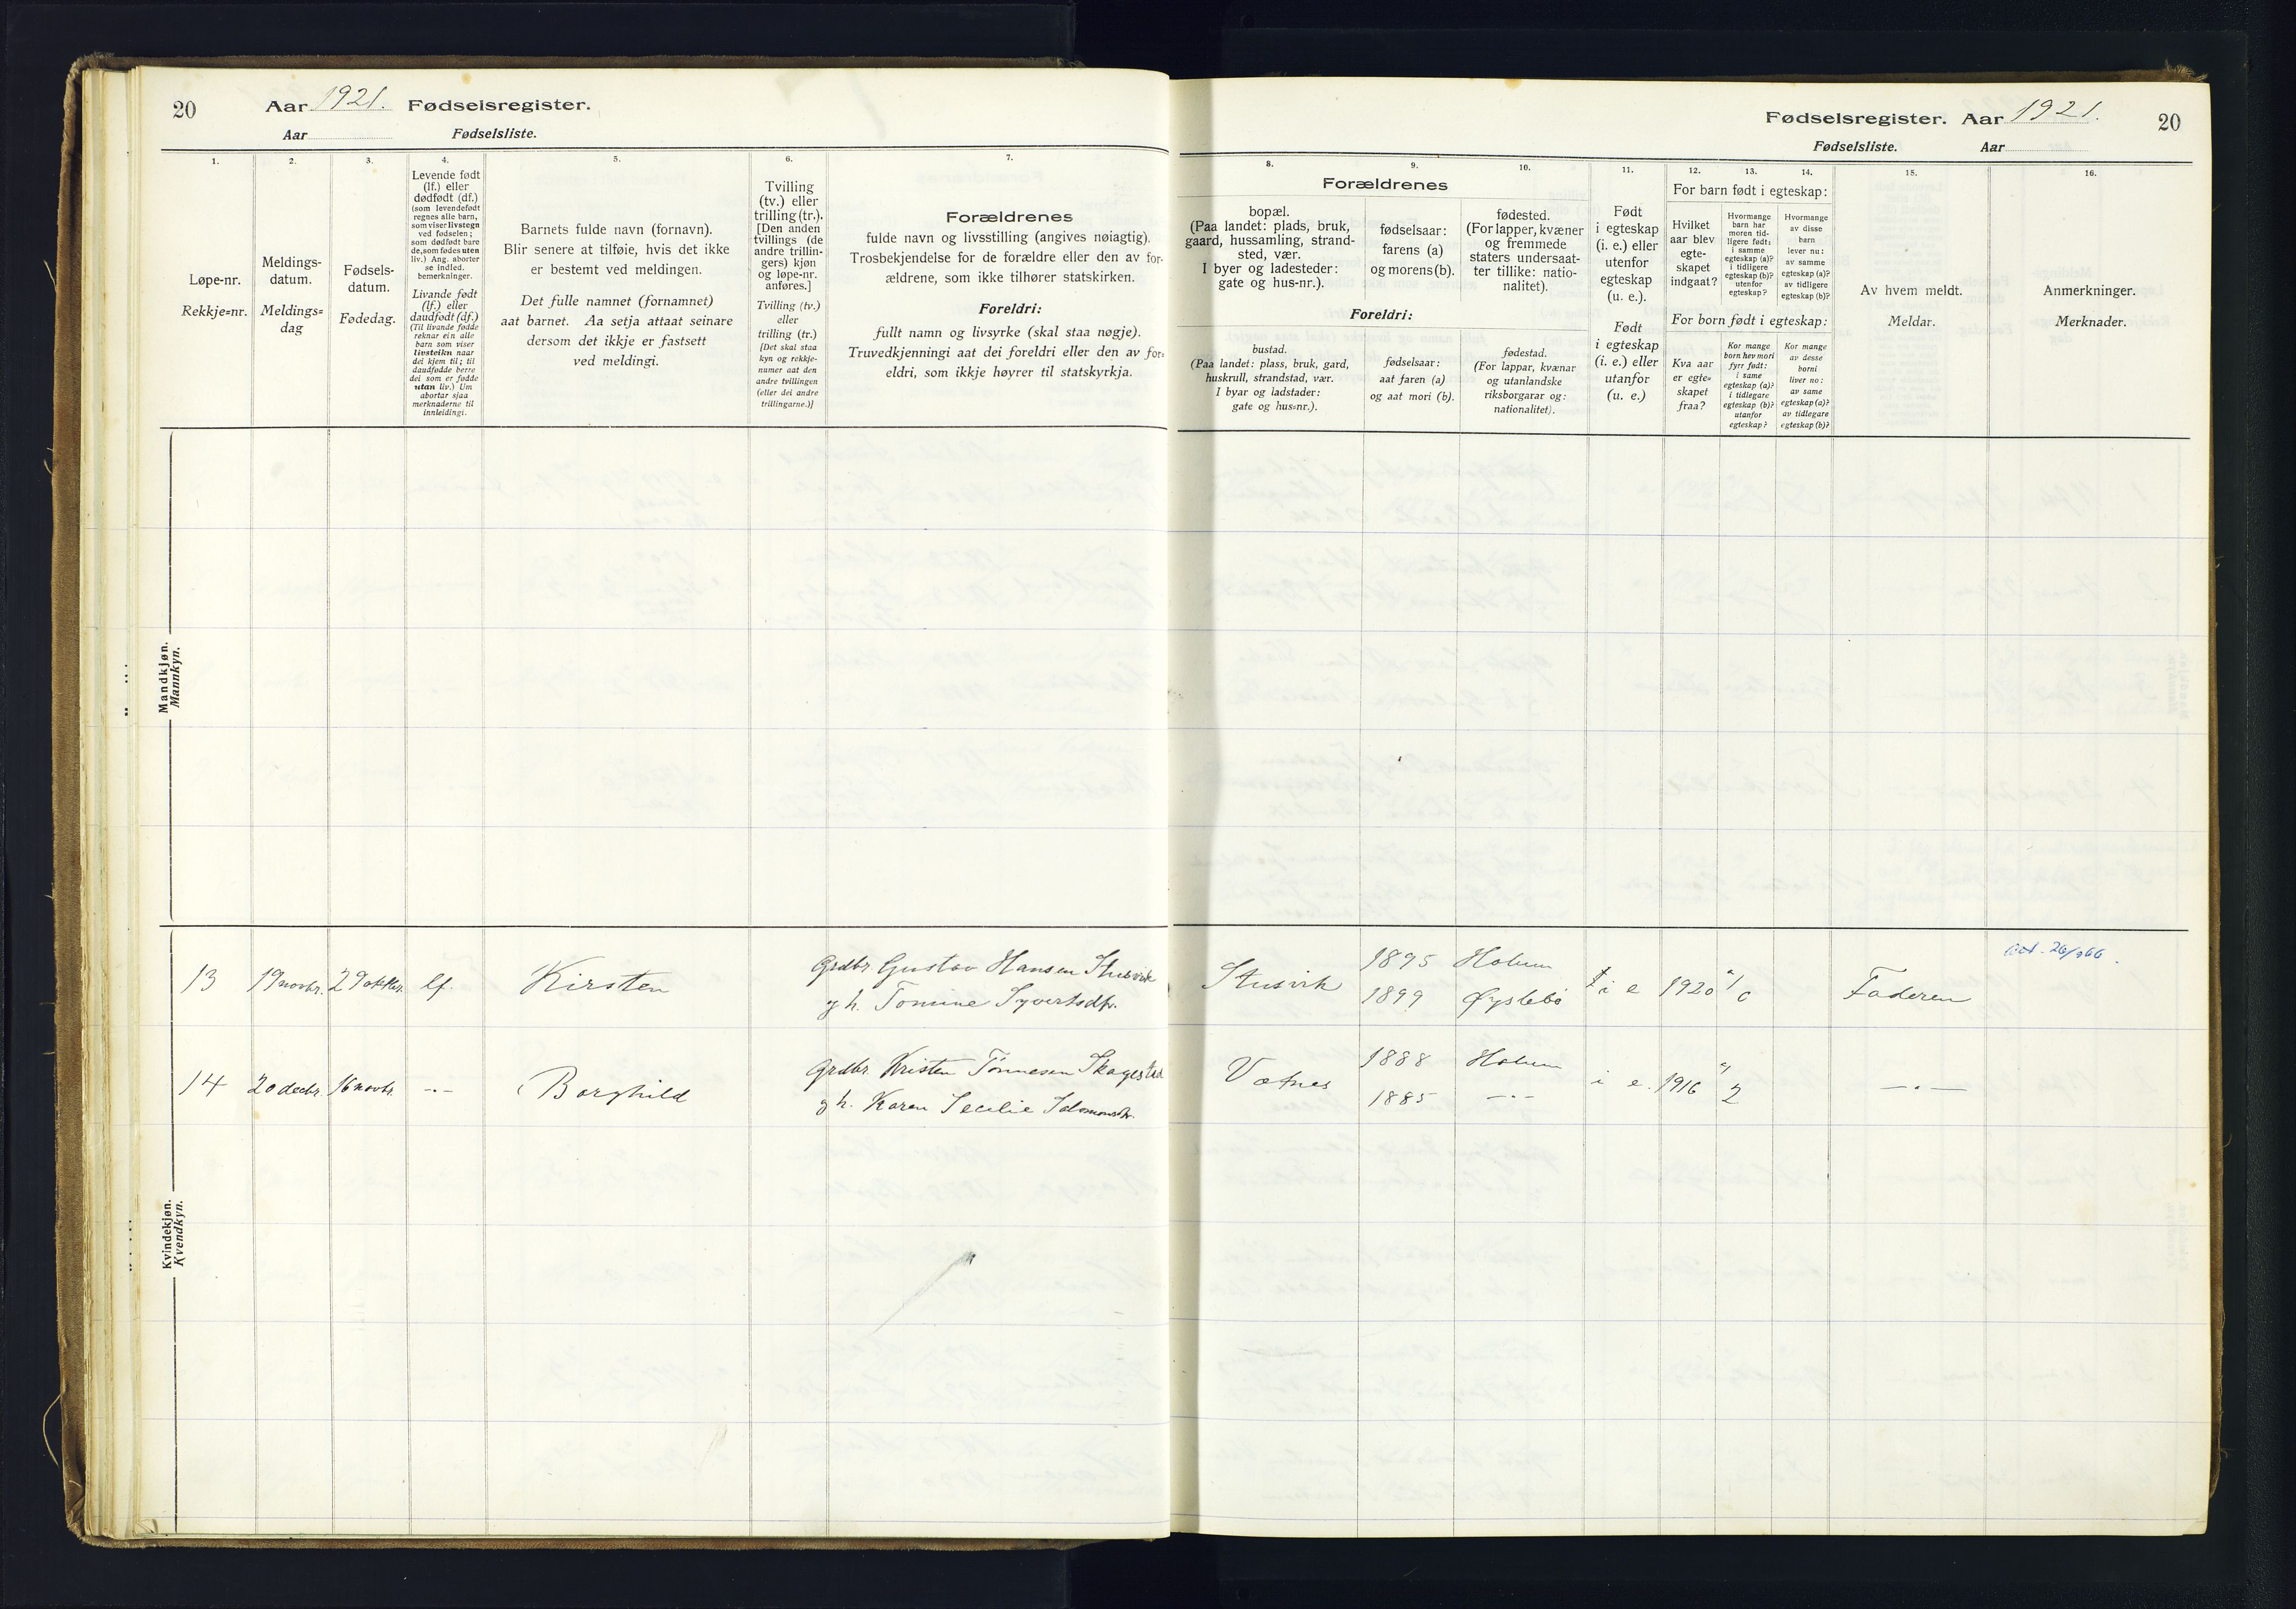 20
Aar 1921. Fødselsregister.
Aar Fødselsliste.
1.
2.
3.
4.
5.
6.
7.
Løpe-nr.
Rekkje=nr.
Meldings-
datum.
Meldings=
dag
Fødsels-
datum.
Fødedag.
Levende født
(lf.) eller
dødfødt (df.)
(som levendefødt
regnes alle barn,
som viser livstegn
ved fødselen;
som dødfødt bare
de, som fødes uten
liv.) Ang. aborter
se indled.
bemerkninger.
Livande født
(lf.) eller
daudfødt (df.)
(Til livande fødde
reknar ein alle
barn som viser
livsteikn naar
dei kjem til; til
daudfødde berre
dei som er fødde
utan liv.) Um
abortar sjaa
merknaderne til
innleidingi.
Barnets fulde navn (fornavn).
Blir senere at tilføie, hvis det ikke
er bestemt ved meldingen.
Det fulle namnet (fornamnet)
aat barnet. Aa setja attaat seinare
dersom det ikkje er fastsett
ved meldingi.
Tvilling
(tv.) eller
trilling (tr.).
[Den anden
tvillings (de
andre trillin-
gers) kjøn
og løpe-nr.
anføres.]
Tvilling (tv.)
eller
trilling (tr.)
[Det skal staa
kyn og rekkje-
numer aat den
andre tvillingen
(eller dei andre
trillingarne.)]
Forældrenes
fulde navn og livsstilling (angives nøiagtig).
Trosbekjendelse for de forældre eller den av for-
ældrene, som ikke tilhører statskirken.
Foreldri:
fullt namn og livsyrke (skal staa nøgje).
Truvedkjenningi aat dei foreldri eller den av for=
eldri, som ikkje høyrer til statskyrkja.
Mandkjøn.
Mannkyn.
13 19 novbr. 29 oktbr. lf. Kirsten Grdbr. Gustav Hansen Stusvik
g. h. Tomine Syvertsdtr.
14 20 decbr. 16 novbr. -.- Borghild Grdbr. Kristen Tønnesen Skagestad
g. h. Karen Secilie Salomonsdtr.
Kvindekjøn.
Kvendkyn.
Fødselsregister. Aar 1921. 20
Fødselsliste. Aar
8.
9.
10.
11.
12.
13.
14.
15.
16.
Forældrenes
bopæl.
(Paa landet: plads, bruk,
gaard, hussamling, strand-
sted, vær.
I byer og ladesteder:
gate og hus-nr.).
fødselsaar:
farens (a)
og morens (b).
fødested.
(For lapper, kvæner
og fremmede
staters undersaat-
ter tillike: natio-
nalitet).
Foreldri:
bustad.
(Paa landet: plass, bruk, gard,
huskrull, strandstad, vær.
I byar og ladstader:
gate og hus=nr.).
fødselsaar:
aat faren (a)
og aat mori (b).
fødestad.
(For lappar, kvænar
og utanlandske
riksborgarar og:
nationalitet).
Født
i egteskap
(i. e.) eller
utenfor
egteskap
(u. e.).
Født
i egteskap
(i. e.) eller
utanfor
(u. e.)
For barn født i egteskap:
Hvilket
aar blev
egte-
skapet
indgaat?
Hvormange
barn har
moren tid-
ligere født:
i samme
egteskap (a)?
i tidligere
egteskap (b)?
utenfor
egteskap?
Hvormange
av disse
barn
lever nu:
av samme
egteskap (a)?
av tidligere
egteskap (b)?
For born født i egteskap:
Kva aar
er egte=
skapet
fraa?
Kor mange
born hev mori
fyrr født:
i same
egteskap (a)?
i tidlegare
egteskap (b)?
utanfor
egteskap?
Kor mange
av desse
borni
liver no:
av same
egteskap (a)?
av tidlegare
egteskap (b)?
Av hvem meldt.
Meldar.
Anmerkninger.
Merknader.
Stusvik 1895 Holum i e 1920 a/0 Faderen
1899 Øyslebø
Vatnes 1888 Holum i e. 1916 a/2 -.-
1885 -.-